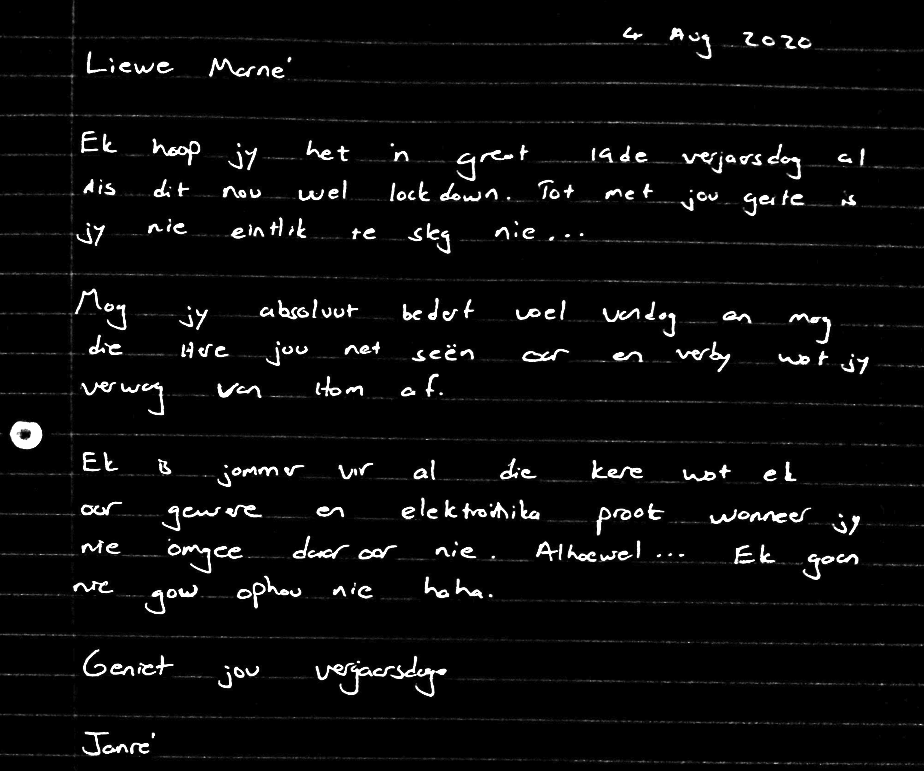 4 Aug 2020
Liewe Marné
Ek hoop jy het 'n great 19de verjaarsdag al
dis dit nou wel lockdown. Tot met jou geite is
jy nie eintlik te sleg nie...
Mog jy absoluut bederf voel vandag en mag
die Here jou net seën oor en verby wat jy
verwag van Hom af.
Ek is jammer vir al die kere wat ek
oor gewere en elektroinika praat wanneer jy
nie omgee daar oor nie. Alhoewel... Ek gaan
nie gow ophou nie haha.
Geniet jou verjaarsdag
Janré